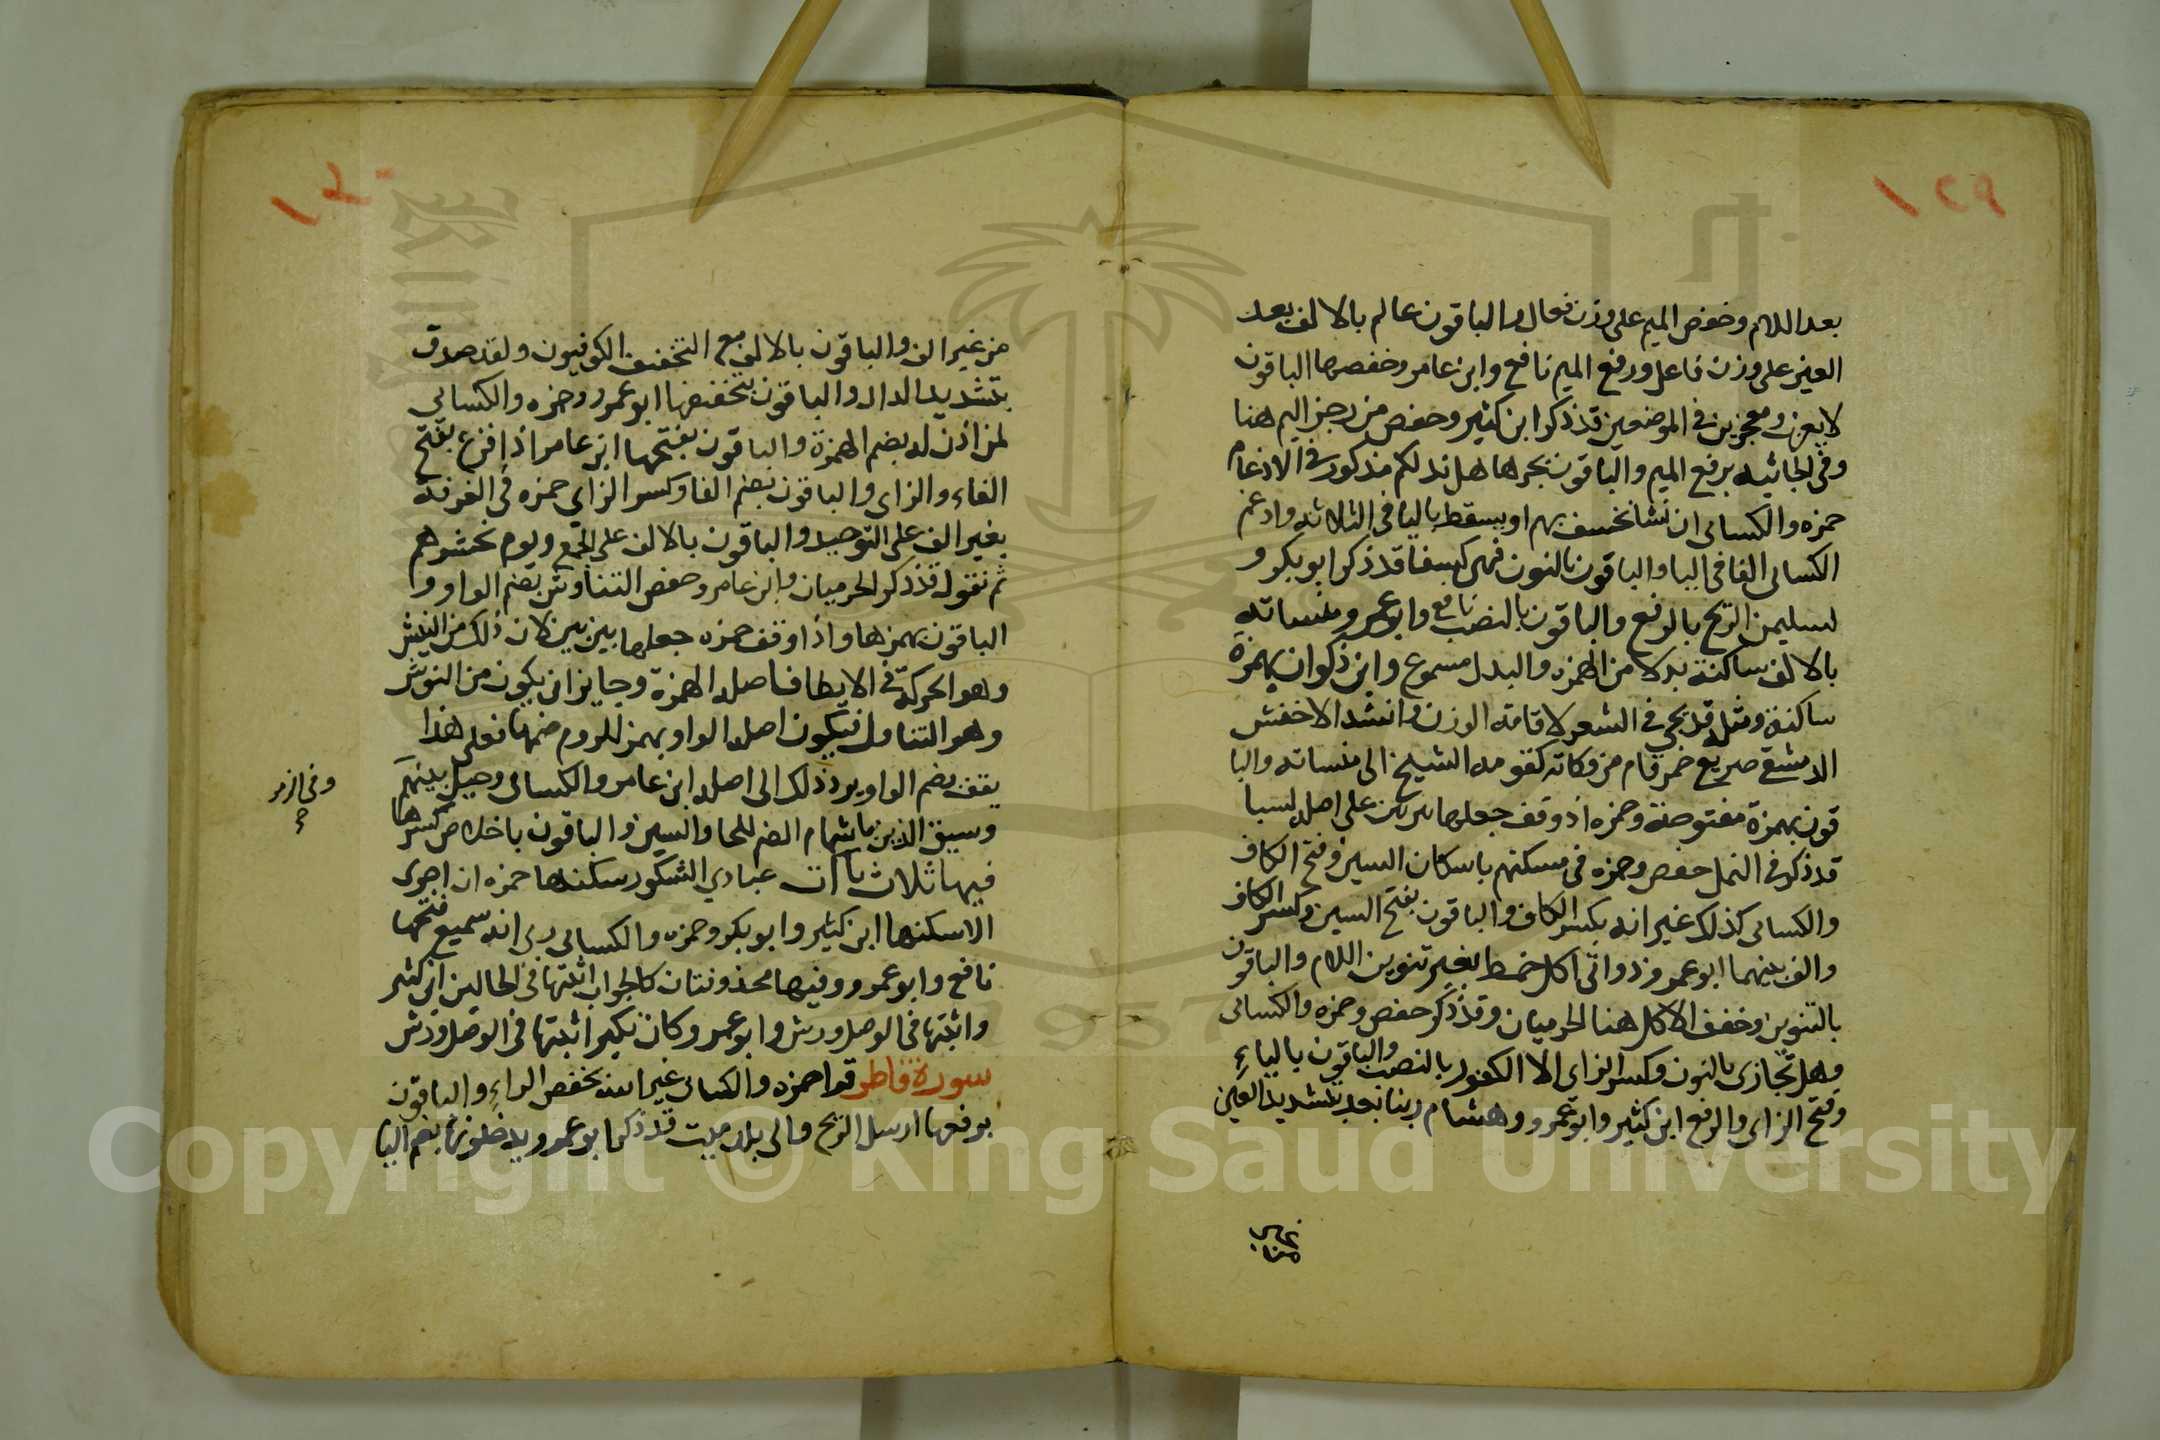 ١٢٩
بعد اللام وخفض الميم على وزن فعال والباقون عالم بالالف بعد
العين على وزن فاعل ورفع الميم نافع وابن عامر وخفضها الباقون
لا يعزب ومعجزين في الموضعين قد ذكرا ابن كثير وحفص من رجز اليم هنا
وفي الجاثيه برفع الميم والباقون بجرها هل ندلكم مذكور في الادغام
حمزه والكسائى ان نشا نخسف بهم او يسقط باليا في الثلاثه وادغم
الكسائى الفا في اليا والباقون بالنون فيهن كسفا قد ذكر ابو بكر و
لسليمن الريح بالرفع والباقون بالنصب نافع وابو عمرو منساته
بالالف ساكنة بدلا من الهمزه والبدل مسموع وابن ذكوان بهمزة
ساكنة ومثله قد يجي في الشعر لاقامة الوزن وانشد الاخفش
الدمشقي صريع خمر قام من وكاته كقومه الشيخ الى منساته والبا
قون بهمزة مفتوحة وحمزه اذ وقف جعلها بين بين على اصله لسبا
قد ذكر في النمل حفص وحمزه في مسكنهم باسكان السين وفتح الكاف
والكسائى كذلك غير انه يكسر الكاف والباقون بفتح السين وكسر الكاف
والف بينهما ابو عمرو ذواتى اكل خمط بغير تنوين اللام والباقون
بالتنوين وخفف الاكل هنا الحرميان وقد ذكر حفص وحمزه والكسائى
وهل نجازى بالنون وكسر الزاى الا الكفور بالنصب والباقون بالياء
وفتح الزاى والرفع ابن كثير وابو عمرو وهشام ربنا بعد بتشديد العين
من
١٣٠
من غير الف والباقون بالالف مع التخفيف الكوفيون ولقد صدق
بتشديد الدال والباقون بتخفيفها ابو عمرو وحمزه والكسائي
لمن اذن له بضم الهمزة والباقون بفتحها ابن عامر اذا فزع بفتح
الفاء والزاى والباقون بضم الفا وكسر الزاي حمزه في الغرفة
بغير الف على التوحيد والباقون بالالف على الجمع ويوم نحشرهم
ثم نقول قد ذكر الحرميان وابن عامر وحفص التناوش بضم الواو و
الباقون بهمزها واذا وقف حمزه جعلها بين بين لان ذلك من النيش
وهو الحركة في الابطا فاصله الهمزة وجايز ان يكون من النوش
وهو التناول فيكون اصله الواو يهمز للزوم ضمها فعلى هذا
يقف بضم الواو ويرد ذلك الى اصله ابن عامر والكسائى وحيل بينهم
وسيق الذين باشمام الضم للحا والسين والباقون باخلاص كسرها
فيها ثلاث ياآت عبادي الشكور سكنها حمزه ان اجرى
الا سكنها ابن كثير وابو بكر وحمزه والكسائى ربى انه سميع فتحها
نافع وابو عمرو وفيها محذوفتان كالجواب اثبتها في الحالين ابن كثير
واثبتها في الوصل ورش وابو عمرو وكان نكير اثبتها في الوصل ورش
سورة فاطر قرا حمزه والكسائى غير الله بخفض الراء والباقون
برفعها ارسل الريح والى بلد ميت قد ذكر ابو عمرو يدخلونها بضم اليا
وفى الزمر
Copyright © King Saud University
1957